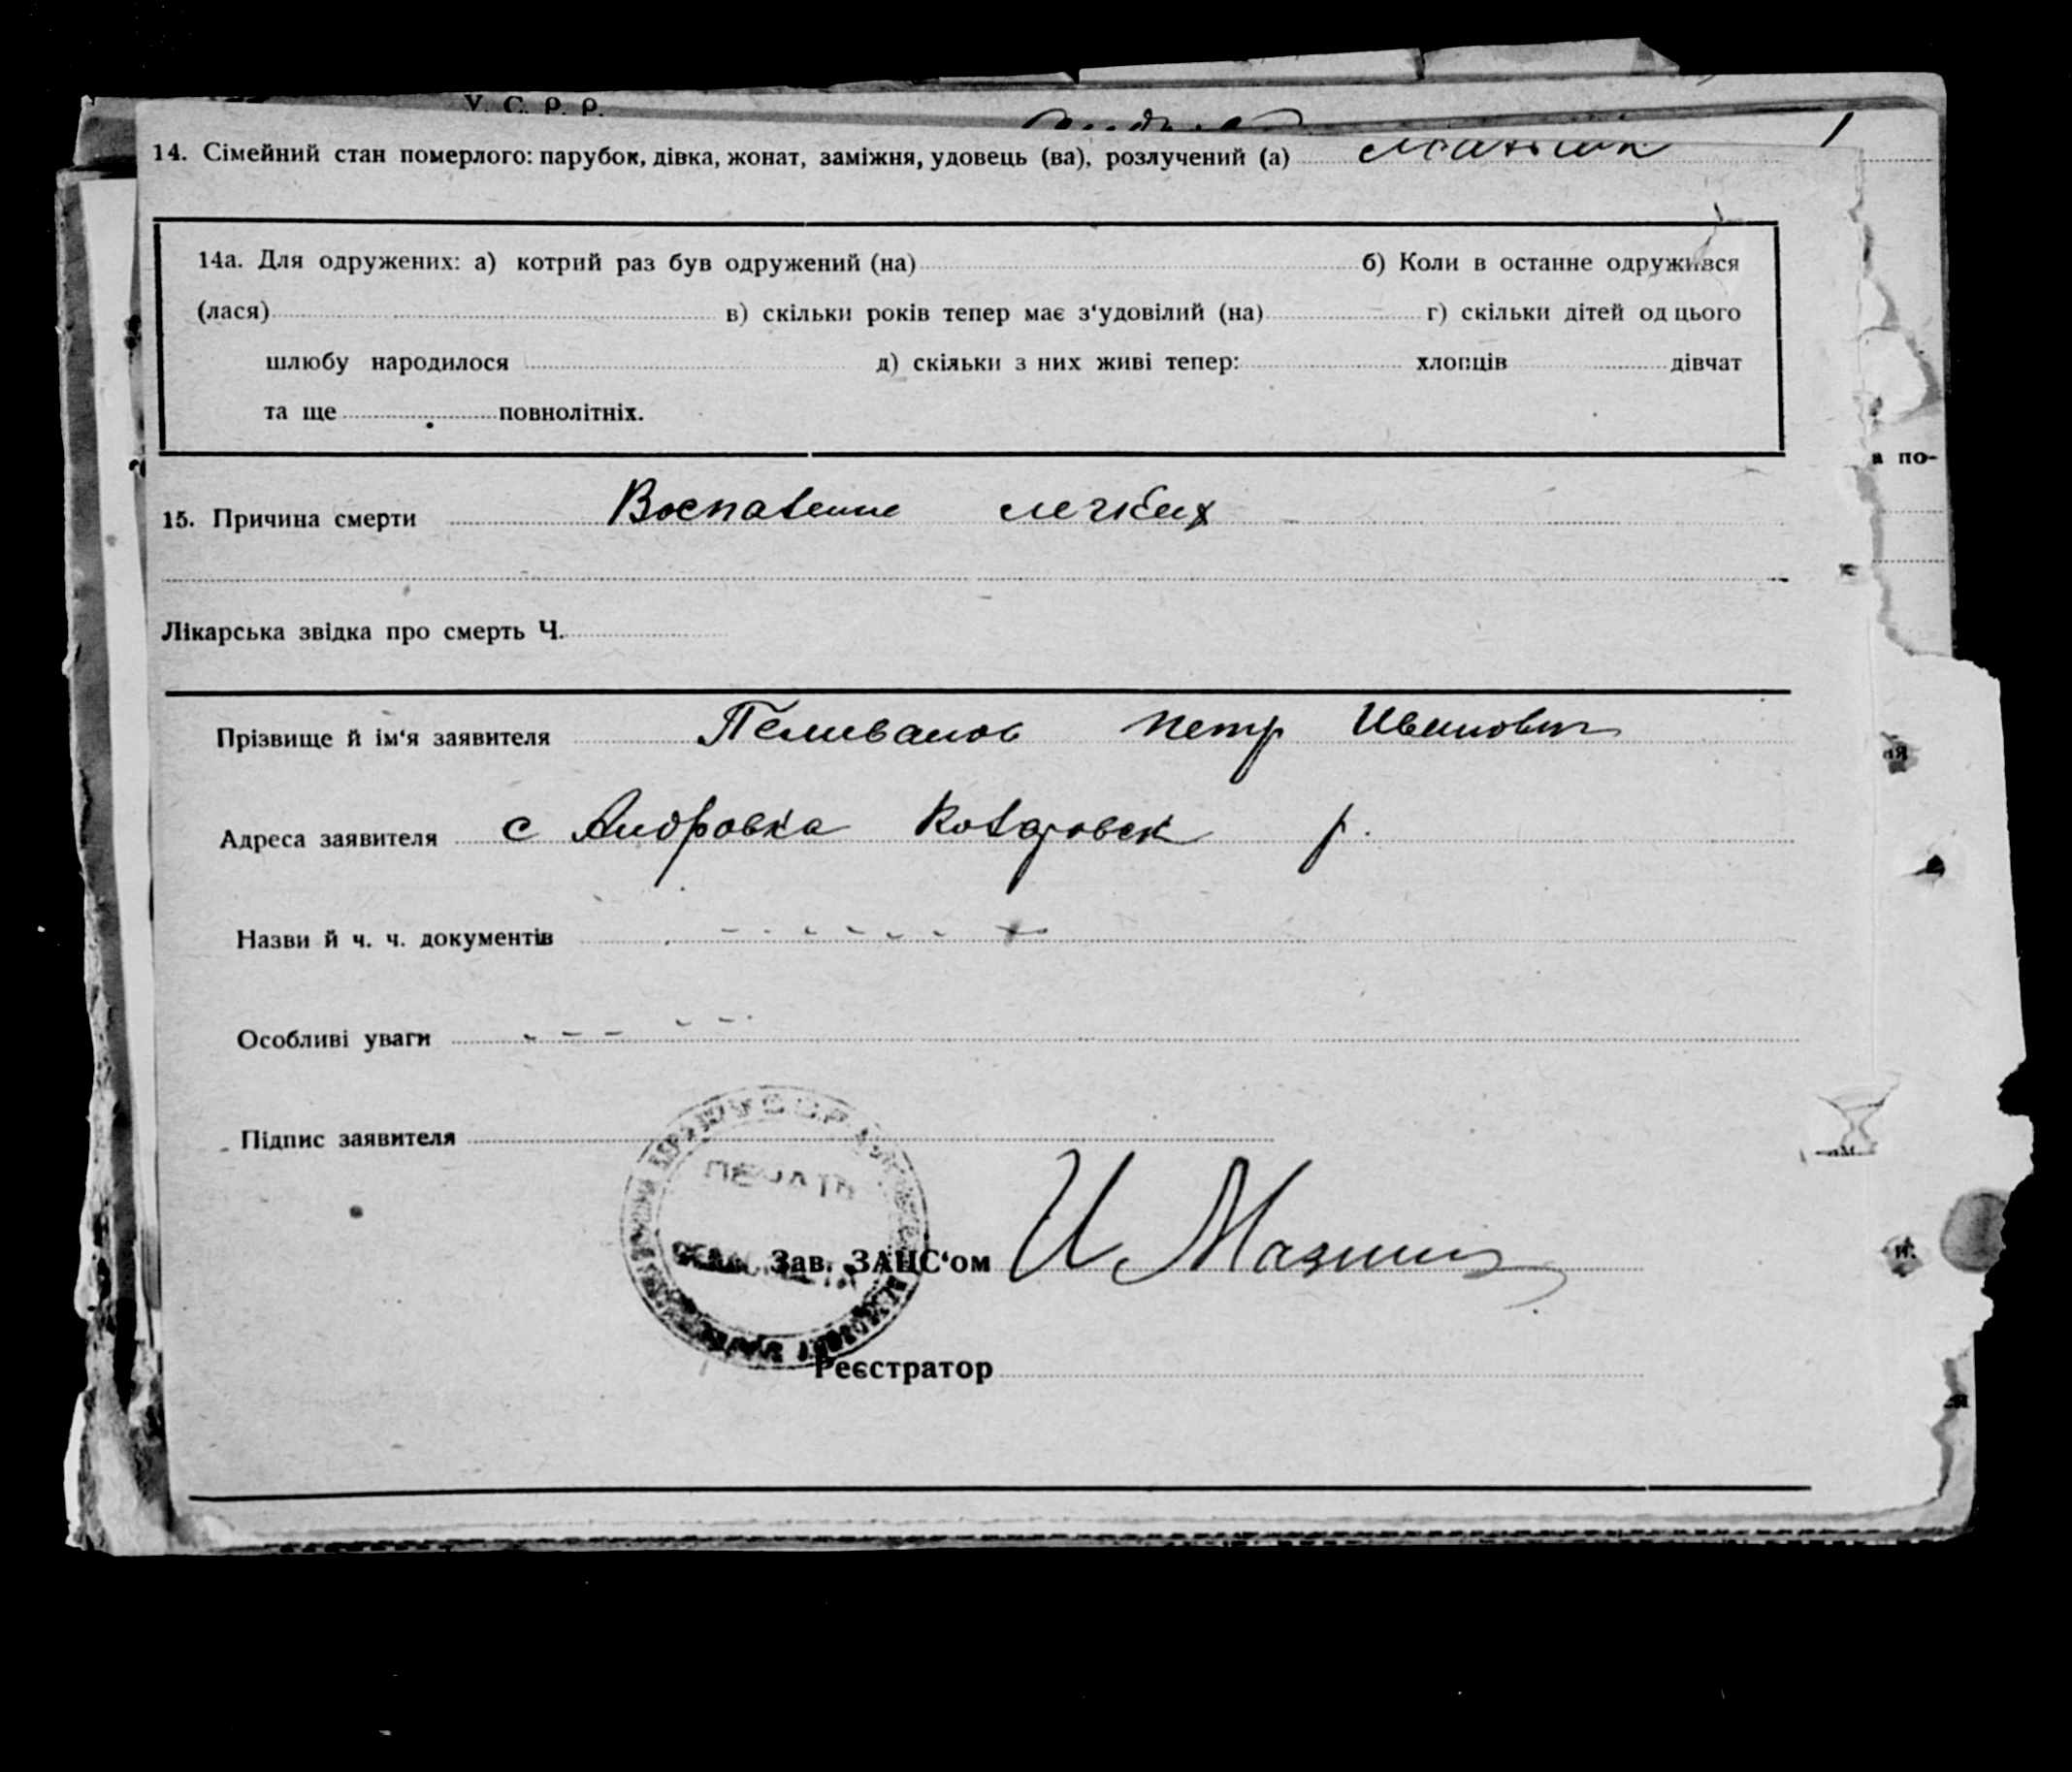 У. С. Р. Р.
14. Сімейний стан померлого: парубок, дівка, жонат, заміжня, удовець (ва), розлучений (а)
14а. Для одружених: а) котрий раз був одружений (на) б) Коли в останне одружився
(лася) в) скільки років тепер має з‘удовілий (на) г) скільки дітей од цього
шлюбу народилося д) скільки з них живі тепер: хлопців дівчат
та ще повнолітніх.
а по-
15. Причина смерти Воспаление легких
Лікарська звідка про смерть Ч.
Прізвище й ім‘я заявителя Пеливанов Петр Иванович
Адреса заявителя с Андровка Коларовск р.
Назви й ч. ч. документів
Особливі уваги
Підпис заявителя
ПЕЧАТЬ
Зав. ЗАПС‘ом И Мазнин
Реєстратор